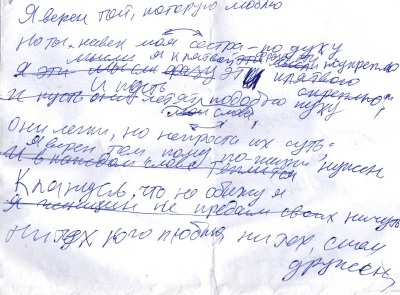 Я верен той, которую люблю
Но ты навек моя сестра - по духу
мысли я клятвой подкреплю
Я эти мысли сразу эти клятвою скреплю
И пусть
И пусть они летят подобно пуху,
мои слова
Они легки, но непроста их суть.
Я верен там кому по жизни нужен
И в каждом слове теплится
Клянусь, что не обижу я
Я женщин не предам своих ничуть
ни тех кого люблю, ни тех, с кем
дружен